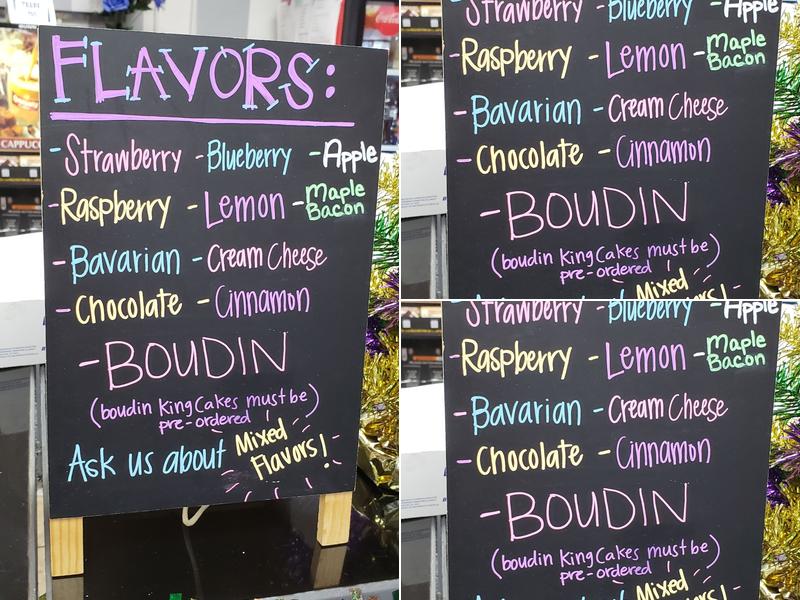 FLAVORS:
-Strawberry -Blueberry -Apple
-Raspberry -Lemon -Maple Bacon
-Bavarian -Cream Cheese
-Chocolate -Cinnamon
-BOUDIN
(boudin King Cakes must be)
pre-ordered
Ask us about Mixed
Flavors!
CAPPUCC
Strawberry -Blueberry -Apple
-Raspberry -Lemon -Maple Bacon
-Bavarian -Cream Cheese
-Chocolate -Cinnamon
-BOUDIN
(boudin King Cakes must be)
pre-ordered
Mixed
Strawberry -Blueberry -Apple
-Raspberry -Lemon -Maple Bacon
-Bavarian -Cream Cheese
-Chocolate -Cinnamon
-BOUDIN
(boudin King Cakes must be)
pre-ordered
Mixed